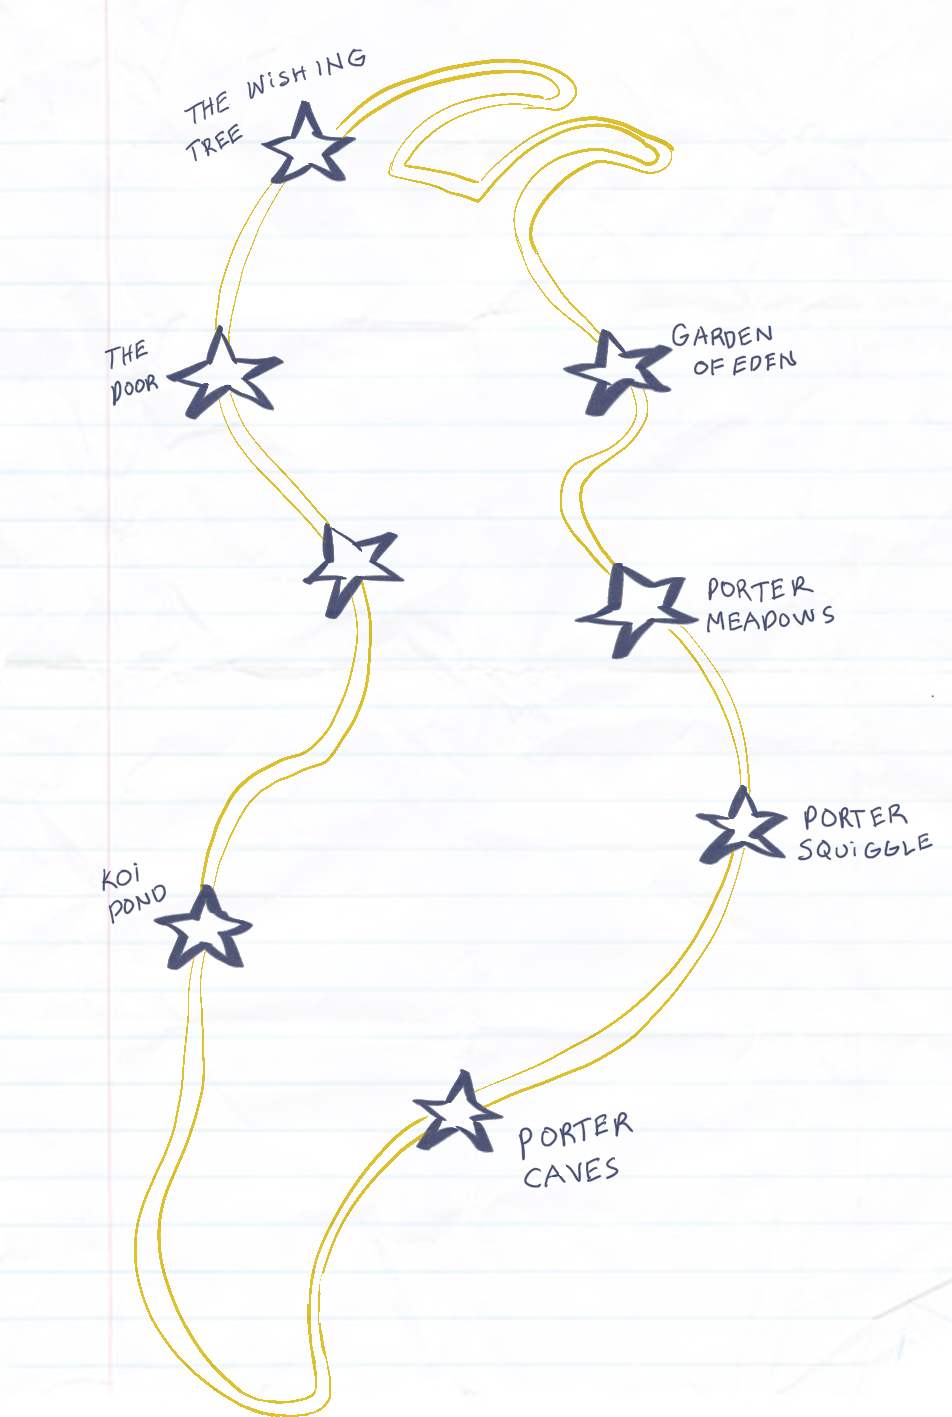 THE WISHING
TREE
THE
DOOR
GARDEN
OF EDEN
PORTER
MEADOWS
PORTER
SQUiGGLE
KOi
POND
PORTER
CAVES